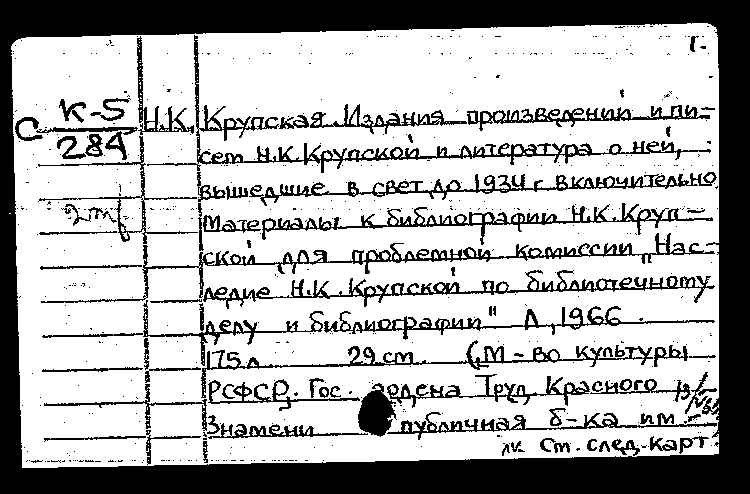 1.
С К-5 Н.К. Крупская. Издания произведений и пи-
284 сем Н.К. Крупской и литература о ней,
вышедшие в свет до 1934 г. включительно
Материалы к библиографии Н.К. Круп-
ской для проблемной комиссии „Нас-
ледие Н.К. Крупской по библиотечному
делу и библиографии" Л, 1966.
175 л 29 см. (М-во культуры
РСФСР. Гос. ордена Труд. Красного
Знамени публичная б-ка им
См. след. карт.